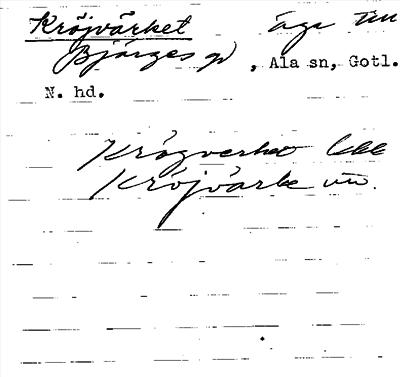 Kröjvärket äga till
Bjärges gd, Ala sn, Gotl.
N. hd.
Krögverket
Kröjvärke un.